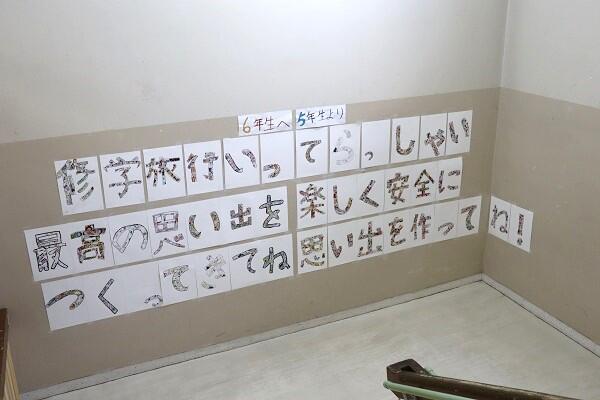 6年生へ 5年生より
修学旅行いってらっしゃい
最高の思い出を
つくってきてね
楽しく安全に
思い出を作ってね!